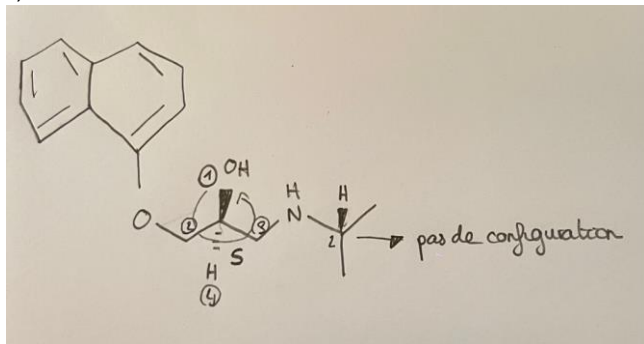 ① OH
H H
O ② ③ N
2 → pas de configuration
S
H
④